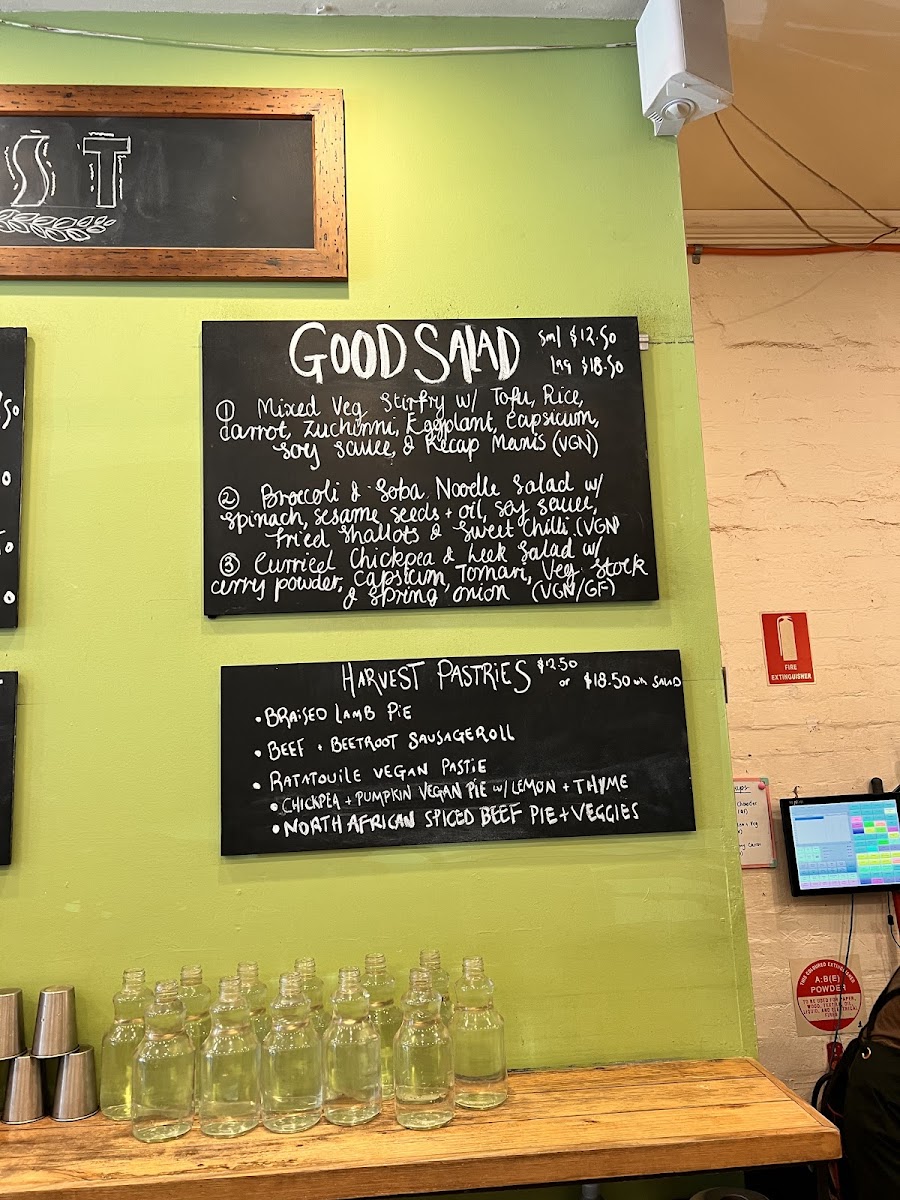 ST
GOOD SALAD
Sml $12.50
lrg $18.50
① Mixed Veg Stirfry w/ Tofu, Rice,
Carrot, Zuchinni, Eggplant, Capsicum,
Soy Sauce, & Kecap Manis (VGN)
② Broccoli & Soba Noodle Salad w/
Spinach, Sesame Seeds + oil, Soy Sauce,
Fried Shallots & Sweet Chilli (VGN)
③ Curried Chickpea & Leek Salad w/
curry powder, Capsicum, Tomari, Veg Stock
& Spring Onion (VGN/GF)
HARVEST PASTRIES $12.50
or $18.50 with SALAD
• BRAISED LAMB PIE
• BEEF + BEETROOT SAUSAGEROLL
• RATATOUILE VEGAN PASTIE
• CHICKPEA + PUMPKIN VEGAN PIE w/ LEMON + THYME
• NORTH AFRICAN SPICED BEEF PIE + VEGGIES
FIRE
EXTINGUISHER
A:B(E)
POWDER